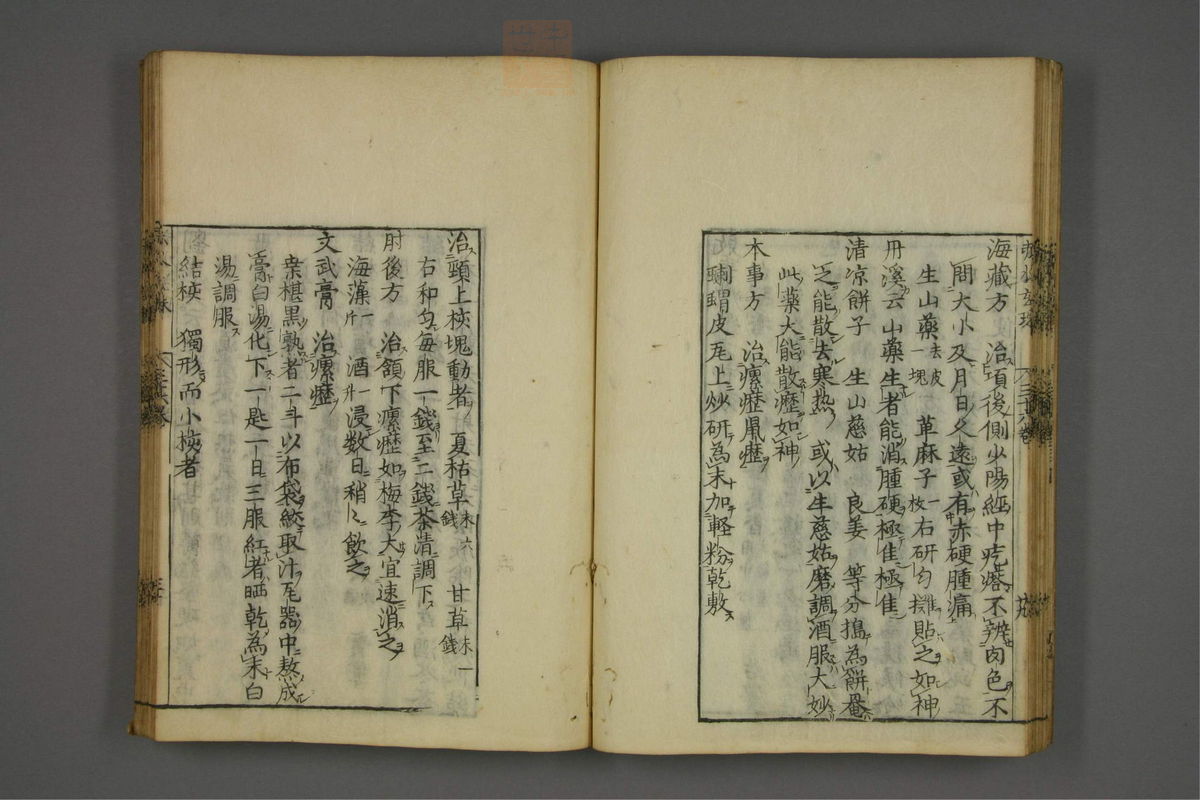 海藏方　治項後側少陽經中疙瘩不辨肉色不
問大小及月日久遠或有赤硬腫痛
生山藥去皮一塊　草麻子一枚右研勻攤貼之如神
丹溪云山藥生者能消腫硬極佳極佳
清凉餅子　生山慈姑　良姜　等分搗為餅罨
之能散去寒熱　或以生慈姑磨調酒服大妙
此藥大能散瀝如神
本事方　治瘰癧鼠癧
刺蝟皮瓦上炒研為末加輕粉乾敷
治頸上核塊動者　夏枯草末六錢　甘草末一錢
右和勻每服一錢至二錢茶清調下
肘後方　治頷下瘰癧如梅李大宜速消之
海藻一斤　酒一升浸數日稍稍飲之
文武膏　治瘰癧
桒椹黑熟者二斗以布袋絞取汁瓦器中熬成
膏白湯化下一匙一日三服紅者晒乾為末白
湯調服
結核　獨形而小核者